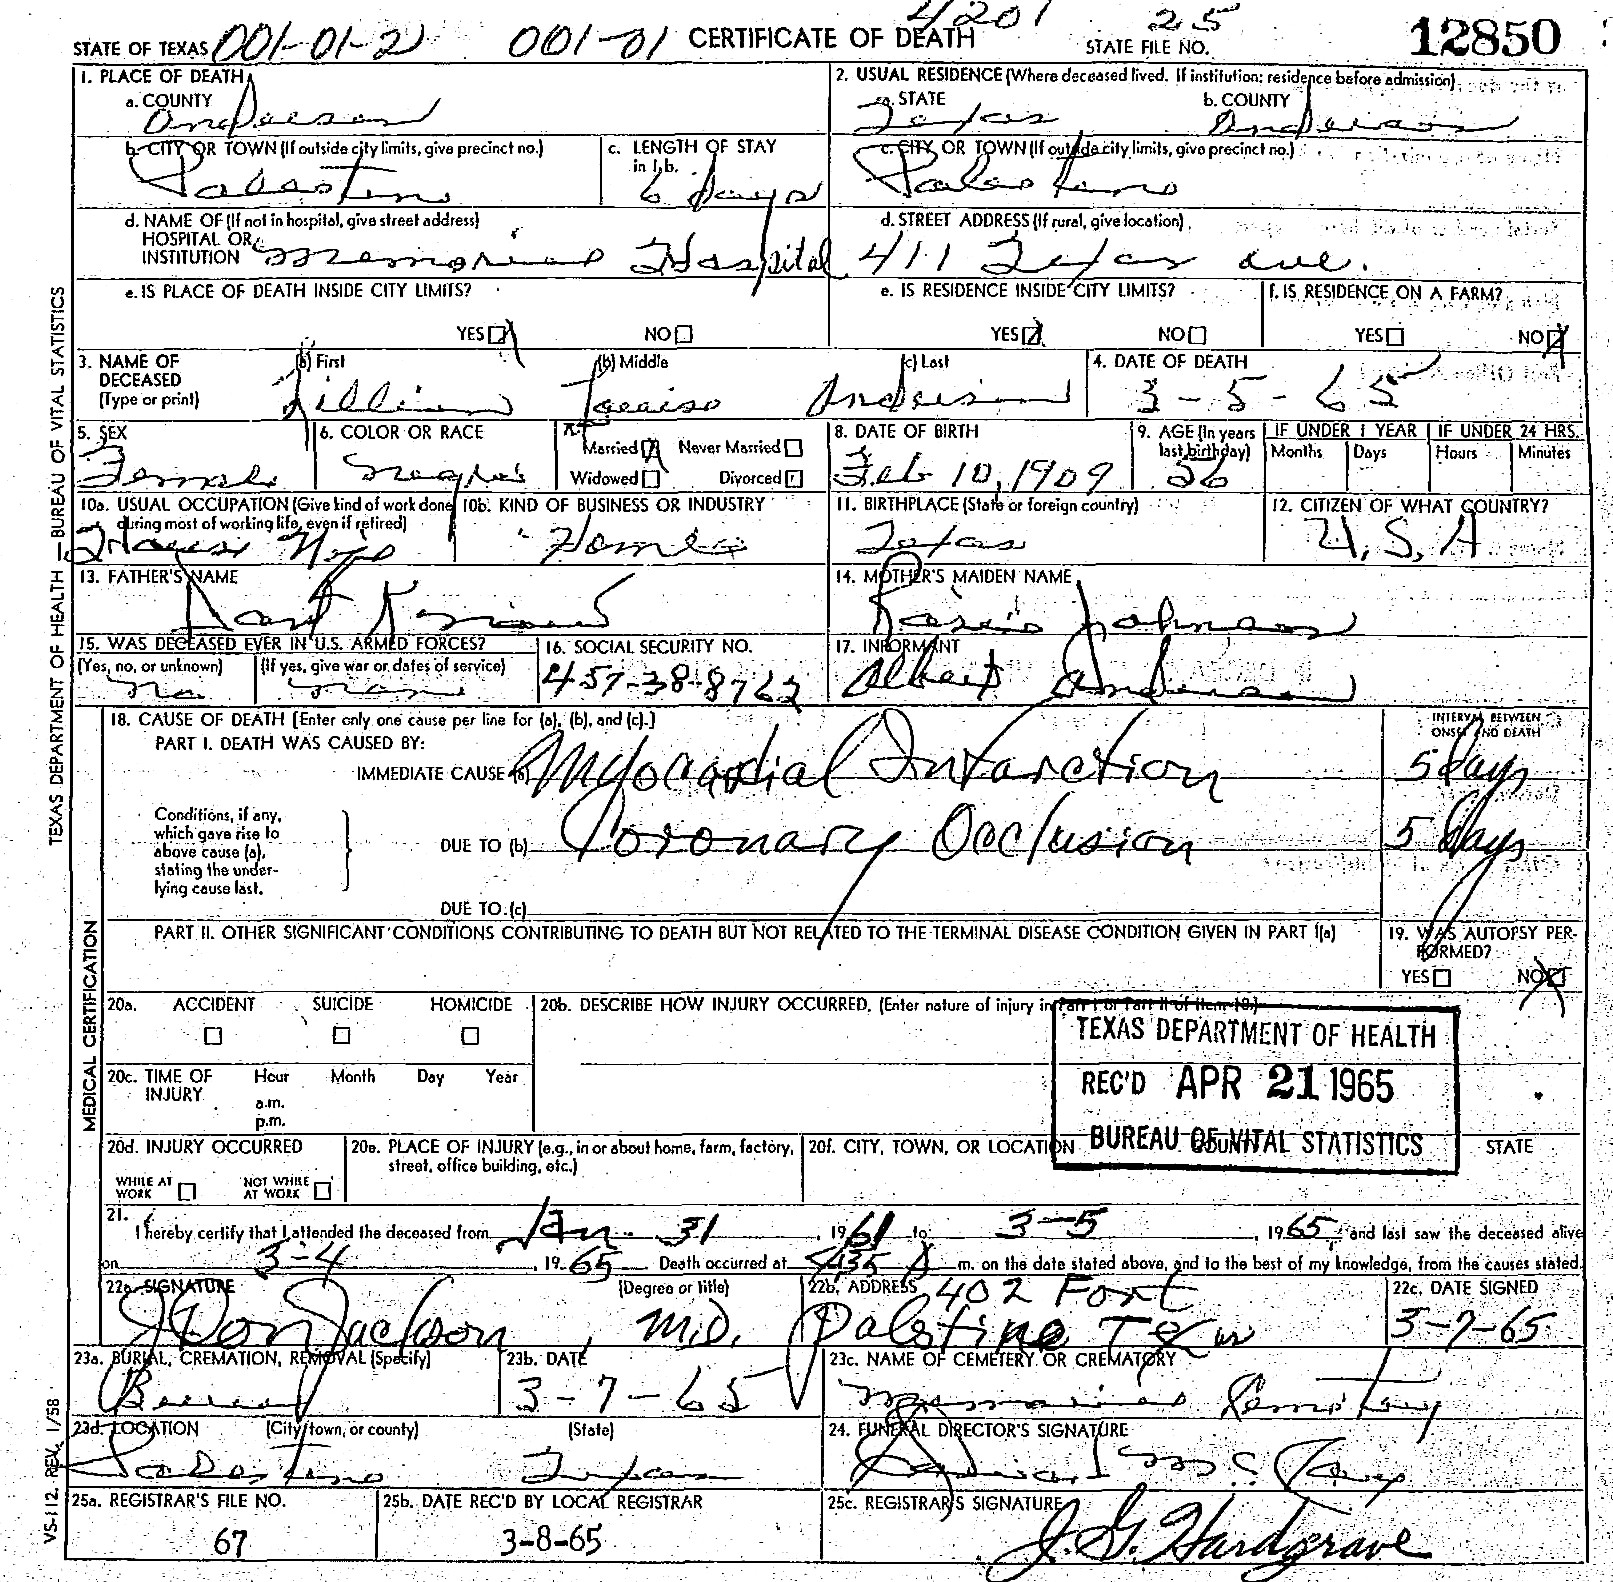 4201 25
STATE OF TEXAS 001-01-2 001-01 CERTIFICATE OF DEATH STATE FILE NO. 12850
1. PLACE OF DEATH 2. USUAL RESIDENCE (Where deceased lived. If institution: residence before admission)
a. COUNTY a. STATE b. COUNTY
Anderson Texas Anderson
b. CITY OR TOWN (If outside city limits, give precinct no.) c. LENGTH OF STAY in 1b. c. CITY OR TOWN (If outside city limits, give precinct no.)
Palestine 6 days Palestine
d. NAME OF (If not in hospital, give street address) HOSPITAL OR INSTITUTION d. STREET ADDRESS (If rural, give location)
Memorial Hospital 411 Texas Ave.
e. IS PLACE OF DEATH INSIDE CITY LIMITS? e. IS RESIDENCE INSIDE CITY LIMITS? f. IS RESIDENCE ON A FARM?
YES NO YES NO YES NO
3. NAME OF DECEASED (Type or print) (a) First (b) Middle (c) Last 4. DATE OF DEATH
Lillian Anderson 3-5-65
5. SEX 6. COLOR OR RACE 7. Married Never Married Widowed Divorced 8. DATE OF BIRTH 9. AGE (In years last birthday) IF UNDER 1 YEAR IF UNDER 24 HRS.
Months Days Hours Minutes
Female Negro Feb 10, 1909 56
10a. USUAL OCCUPATION (Give kind of work done during most of working life, even if retired) 10b. KIND OF BUSINESS OR INDUSTRY 11. BIRTHPLACE (State or foreign country) 12. CITIZEN OF WHAT COUNTRY?
House Wife Home Texas U.S.A
13. FATHER'S NAME 14. MOTHER'S MAIDEN NAME
Johnson
15. WAS DECEASED EVER IN U.S. ARMED FORCES? 16. SOCIAL SECURITY NO. 17. INFORMANT
(Yes, no, or unknown) (If yes, give war or dates of service)
no none 457-38-8762 Albert Anderson
18. CAUSE OF DEATH [Enter only one cause per line for (a), (b), and (c).] INTERVAL BETWEEN ONSET AND DEATH
PART I. DEATH WAS CAUSED BY:
IMMEDIATE CAUSE (a) Myocardial Infarction 5 days
Conditions, if any, which gave rise to above cause (a), stating the underlying cause last.
DUE TO (b) Coronary Occlusion 5 days
DUE TO (c)
PART II. OTHER SIGNIFICANT CONDITIONS CONTRIBUTING TO DEATH BUT NOT RELATED TO THE TERMINAL DISEASE CONDITION GIVEN IN PART I(a) 19. WAS AUTOPSY PERFORMED?
YES NO
20a. ACCIDENT SUICIDE HOMICIDE 20b. DESCRIBE HOW INJURY OCCURRED. (Enter nature of injury in Part I or Part II of item 18.)
TEXAS DEPARTMENT OF HEALTH
REC'D APR 21 1965
BUREAU OF VITAL STATISTICS
20c. TIME OF INJURY Hour Month Day Year
a.m.
p.m.
20d. INJURY OCCURRED 20e. PLACE OF INJURY (e.g., in or about home, farm, factory, street, office building, etc.) 20f. CITY, TOWN, OR LOCATION COUNTY STATE
WHILE AT WORK NOT WHILE AT WORK
21. I hereby certify that I attended the deceased from Jan 31, 1961 to 3-5, 1965, and last saw the deceased alive
on 3-4, 1965. Death occurred at 435 A m. on the date stated above, and to the best of my knowledge, from the causes stated.
22a. SIGNATURE (Degree or title) 22b. ADDRESS 402 Fort 22c. DATE SIGNED
J Don Jackson, M.D. Palestine Texas 3-7-65
23a. BURIAL, CREMATION, REMOVAL (Specify) 23b. DATE 23c. NAME OF CEMETERY OR CREMATORY
Burial 3-7-65 Memorial Cemetery
23d. LOCATION (City, town, or county) (State) 24. FUNERAL DIRECTOR'S SIGNATURE
Palestine Texas
25a. REGISTRAR'S FILE NO. 25b. DATE REC'D BY LOCAL REGISTRAR 25c. REGISTRAR'S SIGNATURE
67 3-8-65 J. G. Hardgrave
TEXAS DEPARTMENT OF HEALTH — BUREAU OF VITAL STATISTICS
MEDICAL CERTIFICATION
VS-112. REV. 1/58